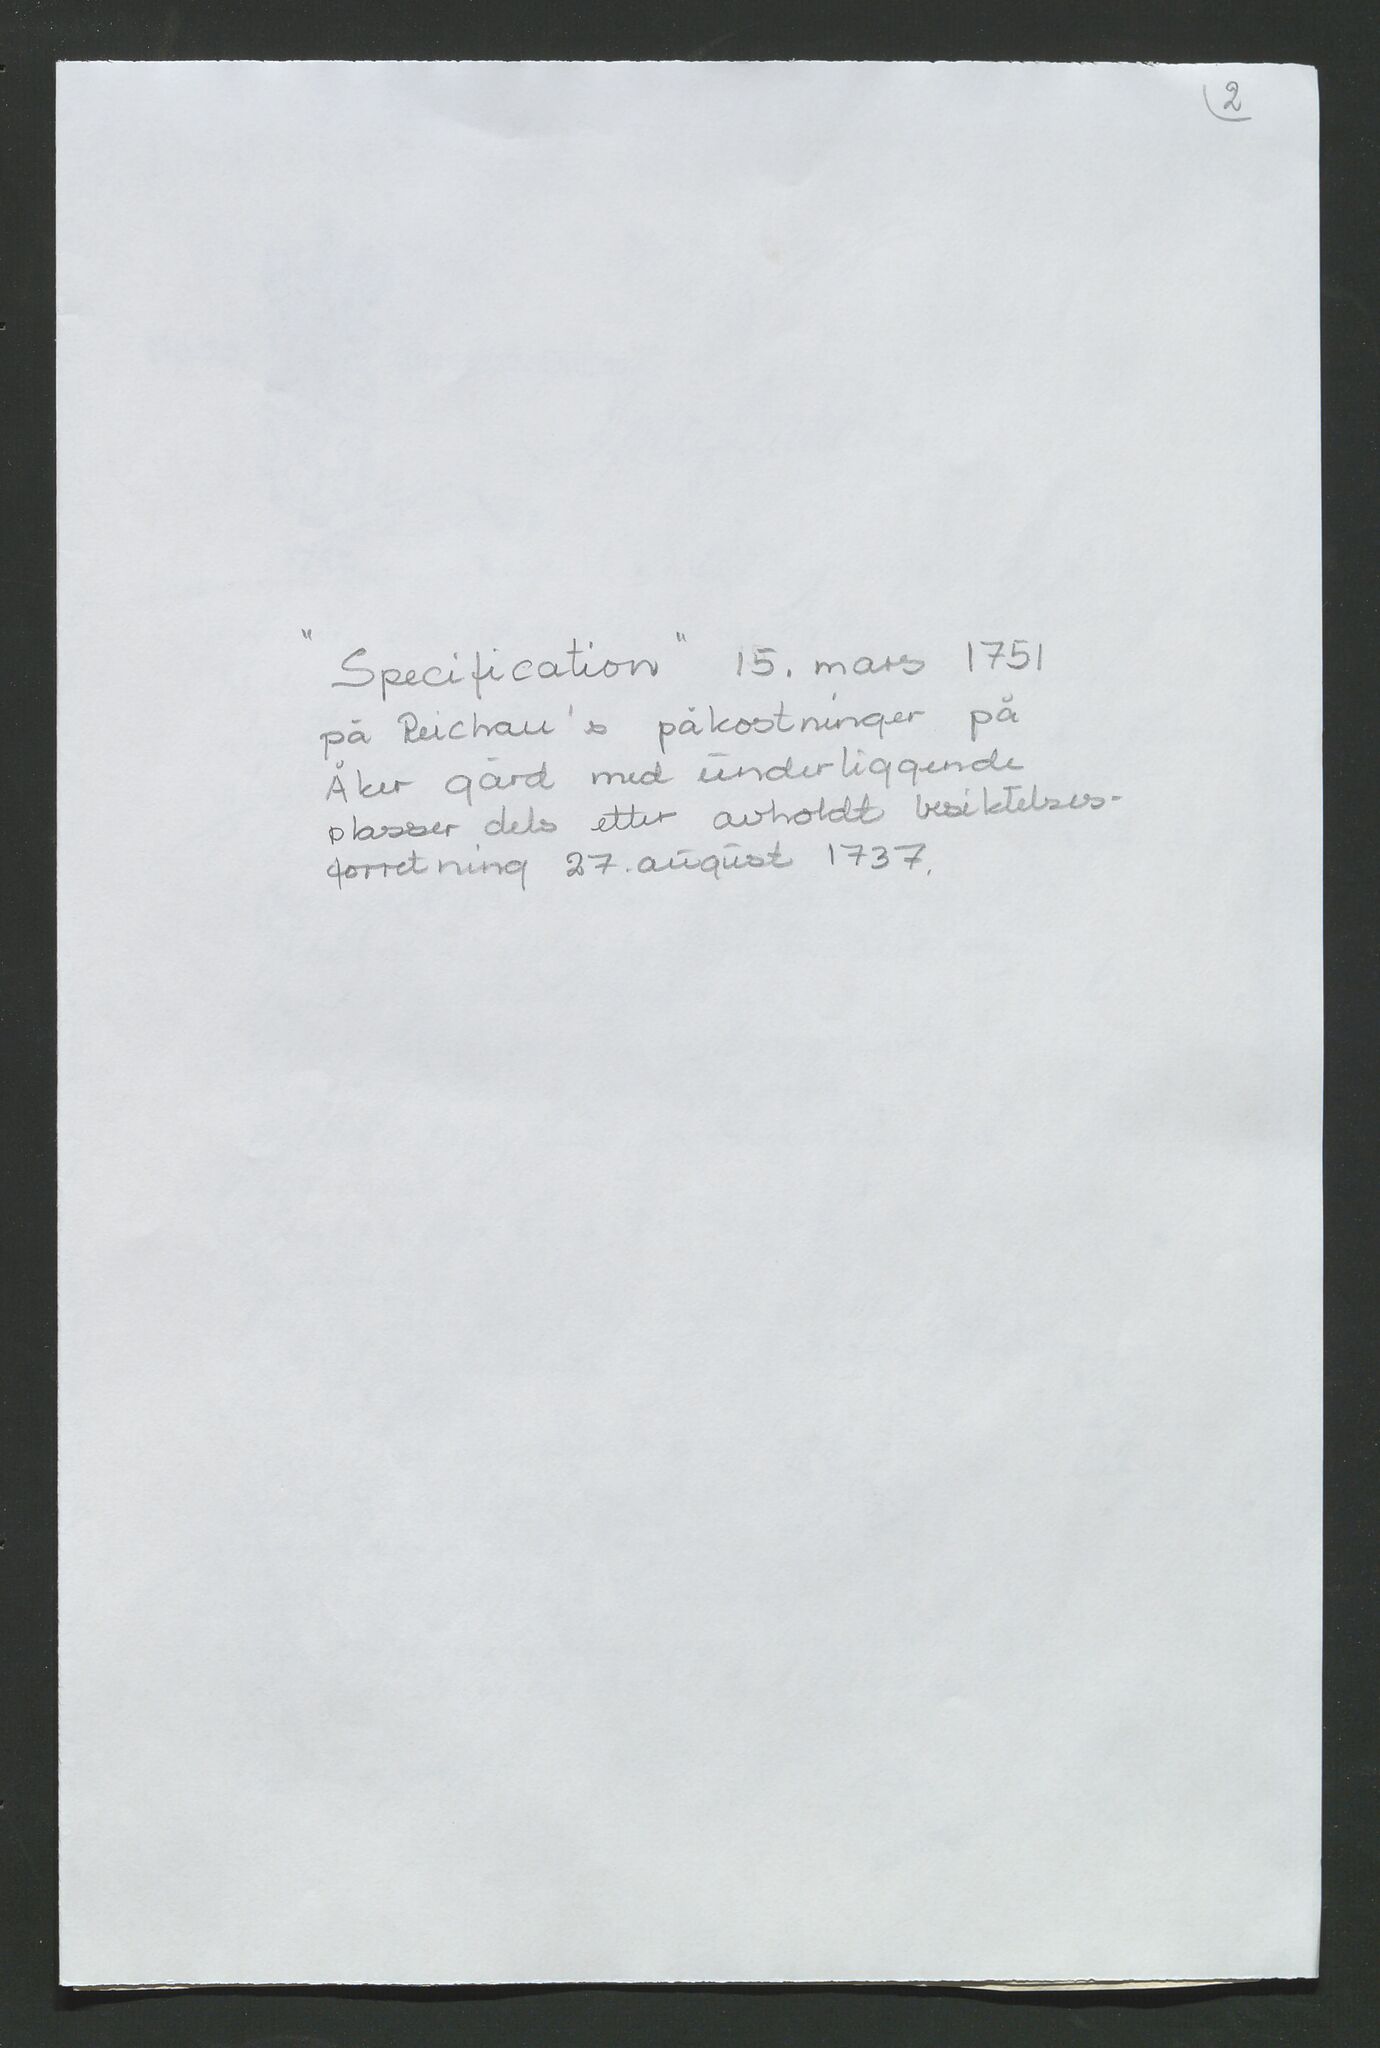 2
"Specification" 15. mars 1751
på Reichau's påkostninger på
Åker gård med underliggende
plasser dels etter avholdt besiktelses-
forretning 27. august 1737.